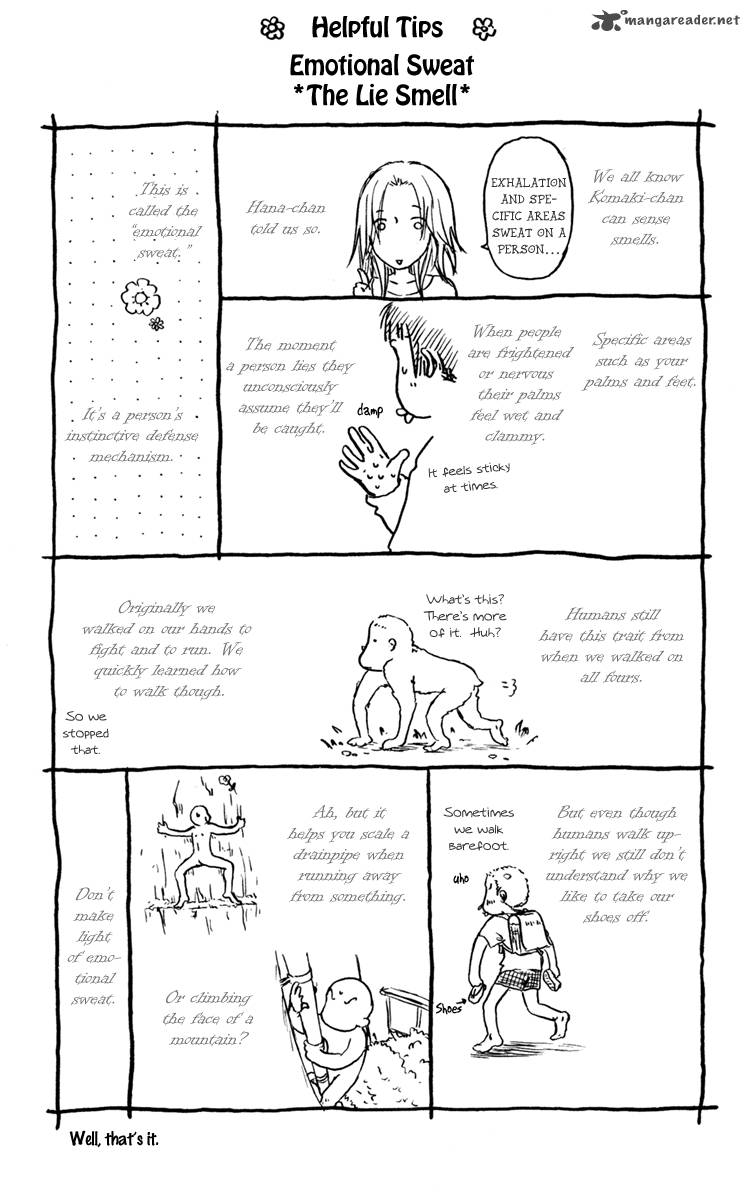 Helpful Tips
mangareader.net
Emotional Sweat
*The Lie Smell*
We all know
Komaki-chan
can sense
smells.
EXHALATION
AND SPE-
CIFIC AREAS
SWEAT ON A
PERSON...
Hana-chan
told us so.
Specific areas
such as your
palms and feet.
When people
are frightened
or nervous
their palms
feel wet and
clammy.
It feels sticky
at times.
damp
The moment
a person lies they
unconsciously
assume they'll
be caught.
This is
called the
"emotional
sweat."
It's a person's
instinctive defense
mechanism.
Humans still
have this trait from
when we walked on
all fours.
What's this?
There's more
of it. Huh?
Originally we
walked on our hands to
fight and to run. We
quickly learned how
to walk though.
So we
stopped
that.
But even though
humans walk up-
right we still don't
understand why we
like to take our
shoes off.
Sometimes
we walk
barefoot.
uho
Shoes
Ah, but it
helps you scale a
drainpipe when
running away
from something.
Or climbing
the face of a
mountain?
Don't
make
light
of emo-
tional
sweat.
Well, that's it.